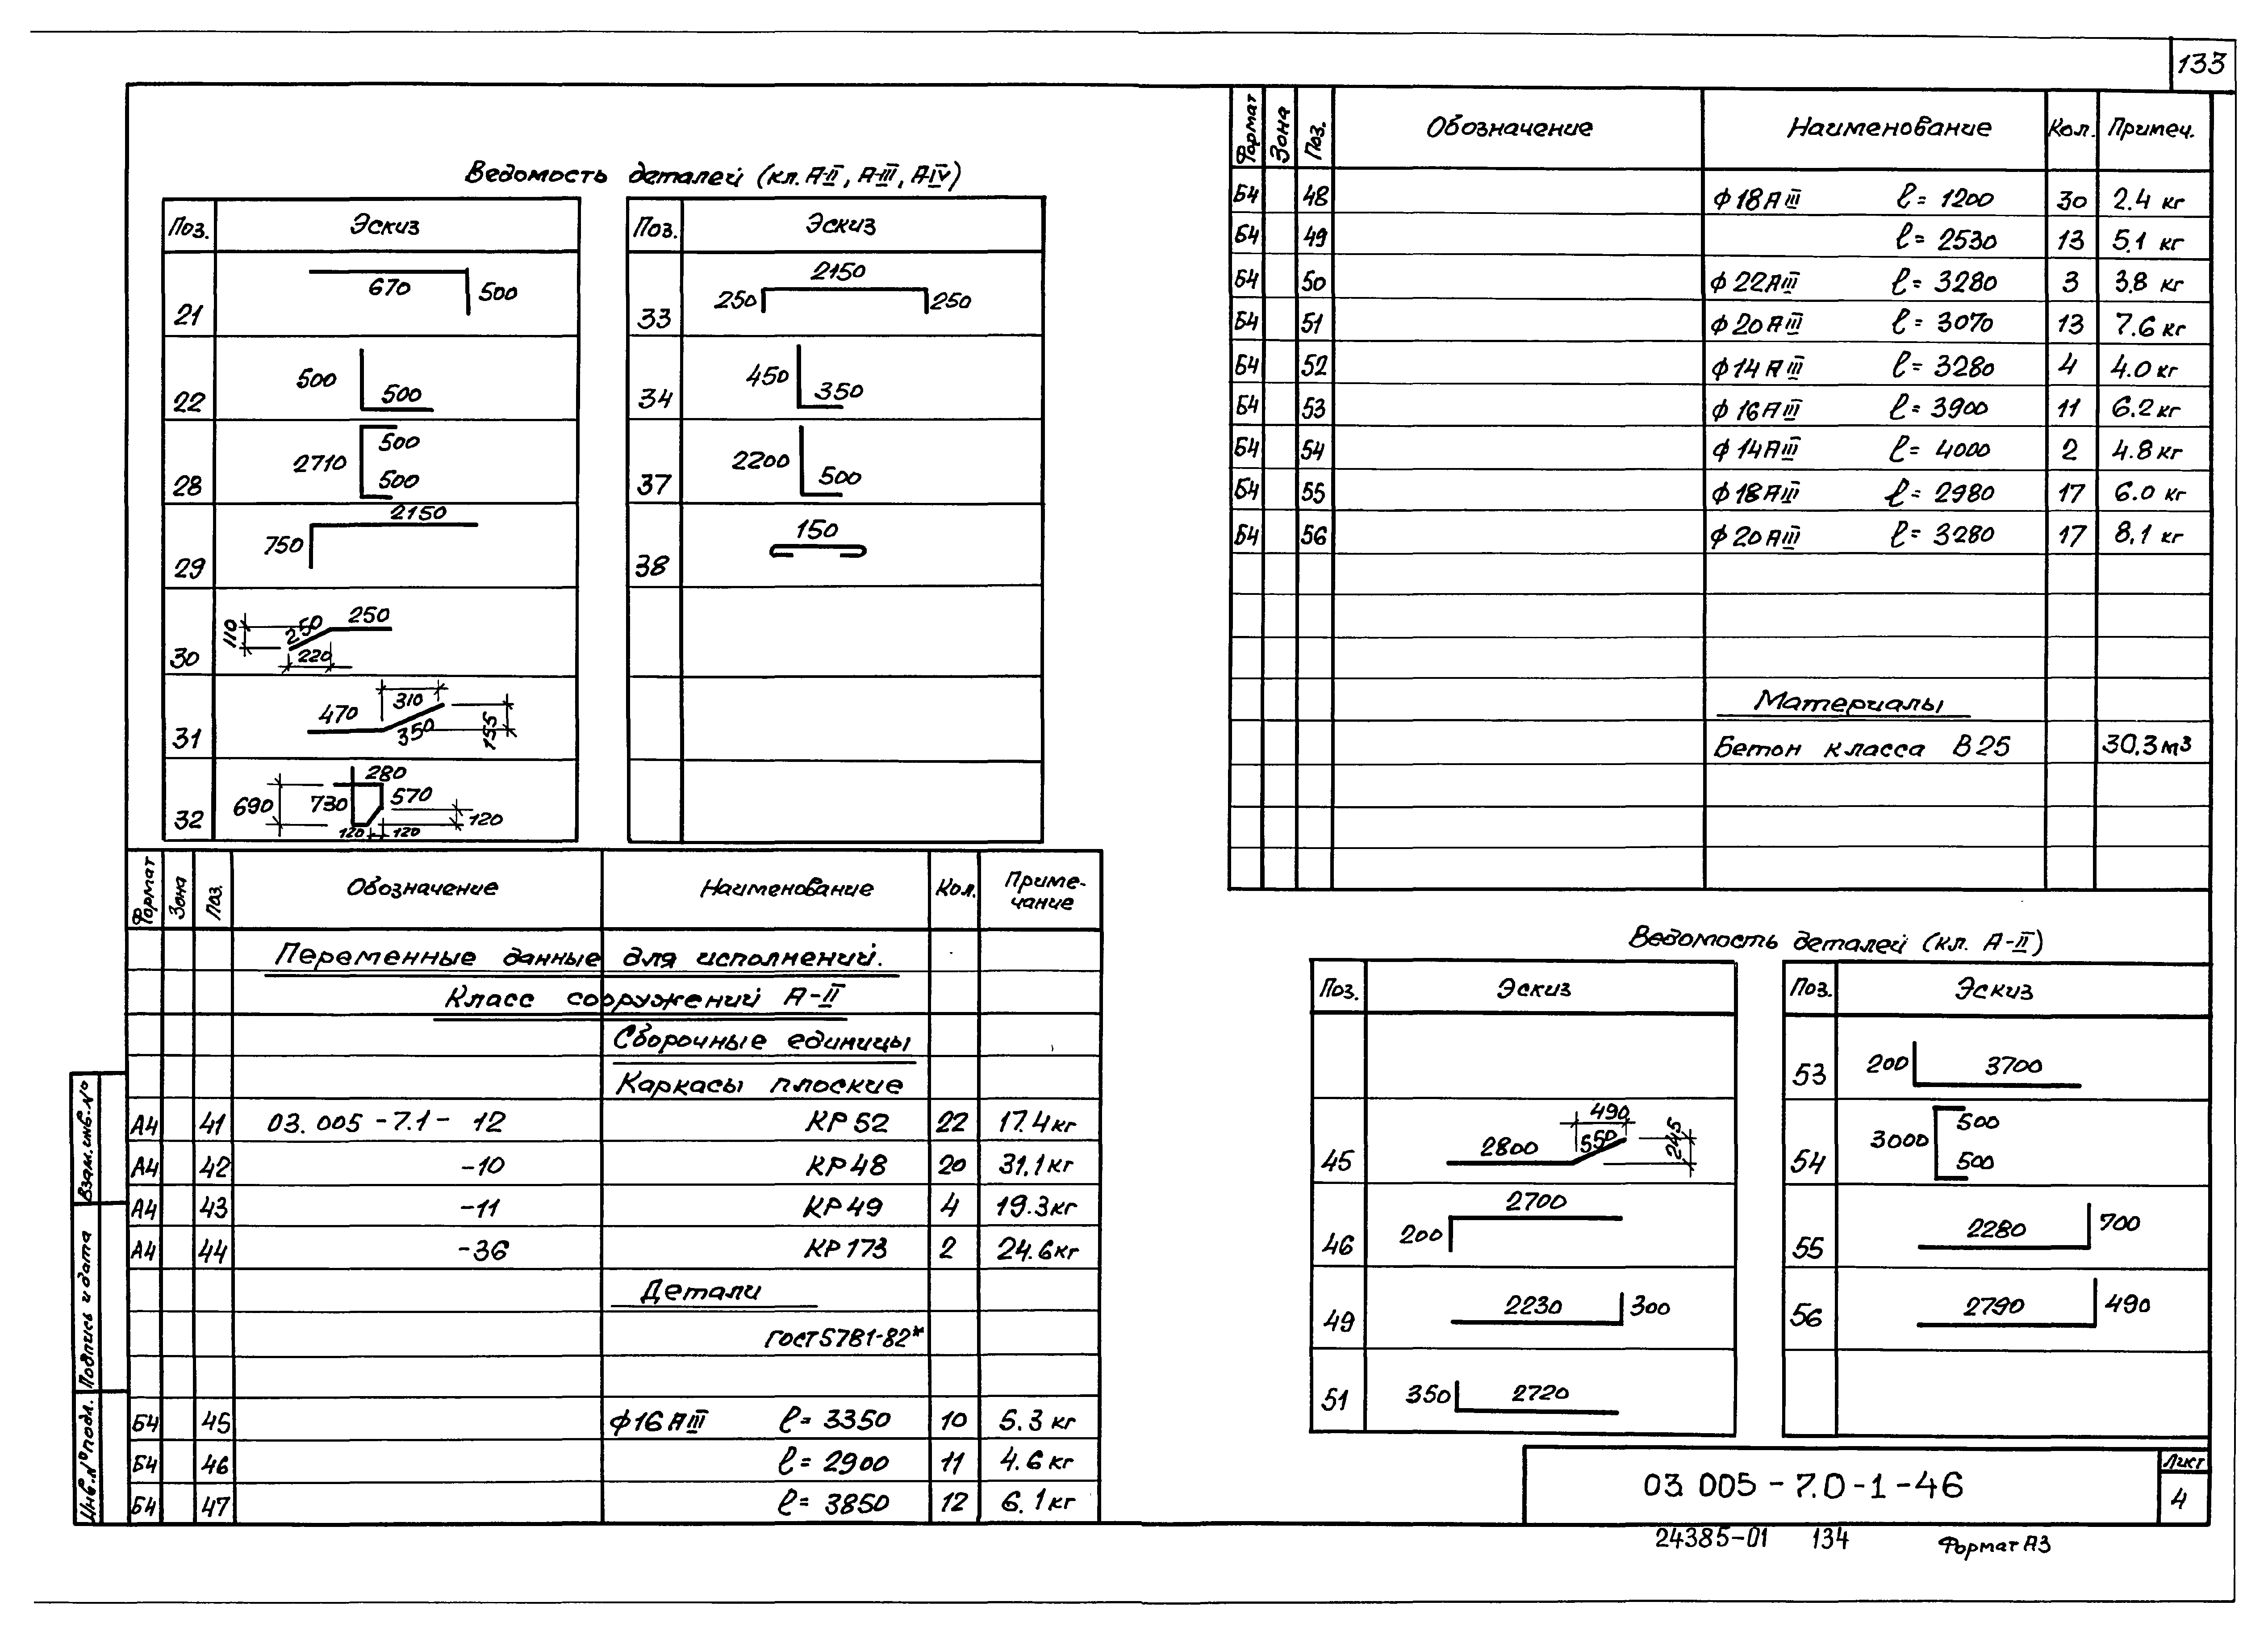 133
Ведомость деталей (кл. А-II, А-III, А-IV)
Поз. Эскиз
21 670 500
22 500 500
28 2710 500 500
29 750 2150
30 110 250 250 220
31 470 310 350 155
32 690 730 280 570 120 120 120
Поз. Эскиз
33 250 2150 250
34 450 350
37 2200 500
38 150
Формат Зона Поз. Обозначение Наименование Кол. Приме-
чание
Переменные данные для исполнений.
Класс сооружений А-II
Сборочные единицы
Каркасы плоские
А4 41 03.005-7.1- 12 КР52 22 17.4кг
А4 42 -10 КР48 20 31.1кг
А4 43 -11 КР49 4 19.3кг
А4 44 -36 КР173 2 24.6кг
Детали
ГОСТ5781-82*
Б4 45 ф16АIII ℓ= 3350 10 5.3 кг
Б4 46 ℓ= 2900 11 4.6 кг
Б4 47 ℓ= 3850 12 6.1 кг
Формат Зона Поз. Обозначение Наименование Кол. Примеч.
Б4 48 ф18АIII ℓ= 1200 30 2.4 кг
Б4 49 ℓ= 2530 13 5.1 кг
Б4 50 ф22АIII ℓ= 3280 3 3.8 кг
Б4 51 ф20АIII ℓ= 3070 13 7.6 кг
Б4 52 ф14АIII ℓ= 3280 4 4.0 кг
Б4 53 ф16АIII ℓ= 3900 11 6.2 кг
Б4 54 ф14АIII ℓ= 4000 2 4.8 кг
Б4 55 ф18АIII ℓ= 2980 17 6.0 кг
Б4 56 ф20АIII ℓ= 3280 17 8.1 кг
Материалы
Бетон класса В25 30.3м³
Ведомость деталей (кл. А-II)
Поз. Эскиз
45 2800 490 550 245
46 200 2700
49 2230 300
51 350 2720
Поз. Эскиз
53 200 3700
54 3000 500 500
55 2280 700
56 2790 490
Взам.инв.№
Подпись и дата
Инв.№подл.
03.005-7.0-1-46
Лист
4
24385-01 134 Формат А3